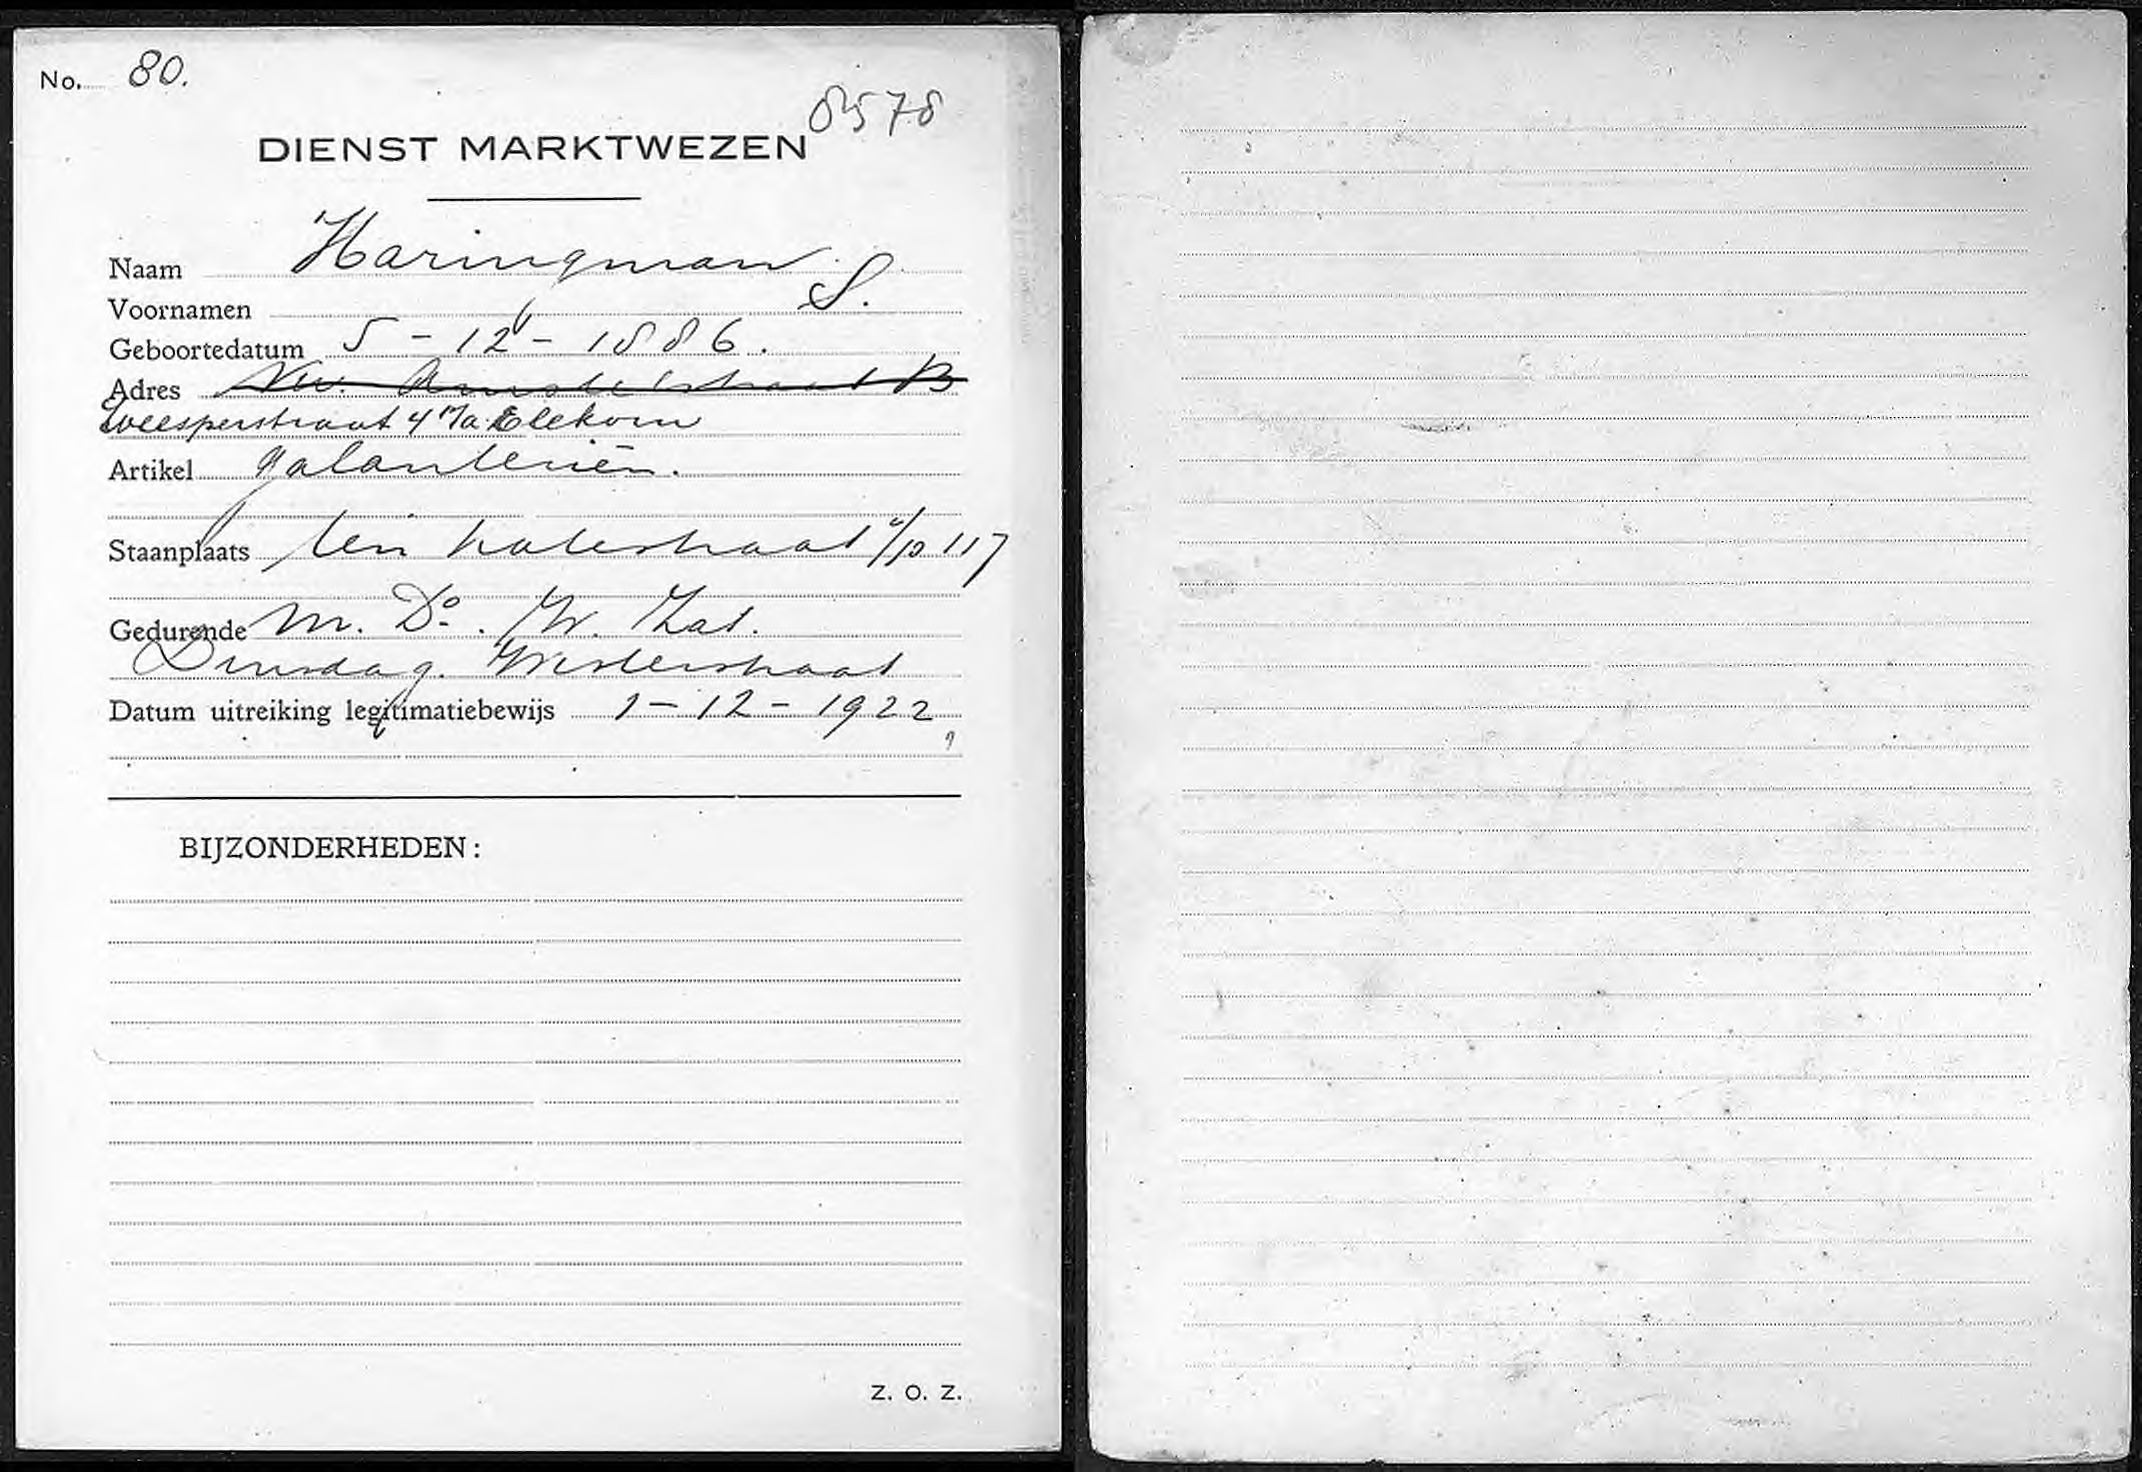 No. 80.
8578
DIENST MARKTWEZEN
Naam Haringman
Voornamen S.
Geboortedatum 5-12-1886.
Adres Nw. Amstelstraat 13
Weesperstraat 4 Blekom
Artikel galanterieën.
Staanplaats ten Katestraat 117
Gedurende M. Do. W. Zat.
Dinsdag. Westerstraat
Datum uitreiking legitimatiebewijs 1-12-1922
BIJZONDERHEDEN:
Z. O. Z.